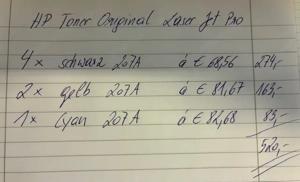 HP Toner Original Laser Jet Pro
4x schwarz 207A á € 68,56 274,-
2x gelb 207A á € 81,67 163,-
1x Cyan 207A á € 82,68 83,-
520,-